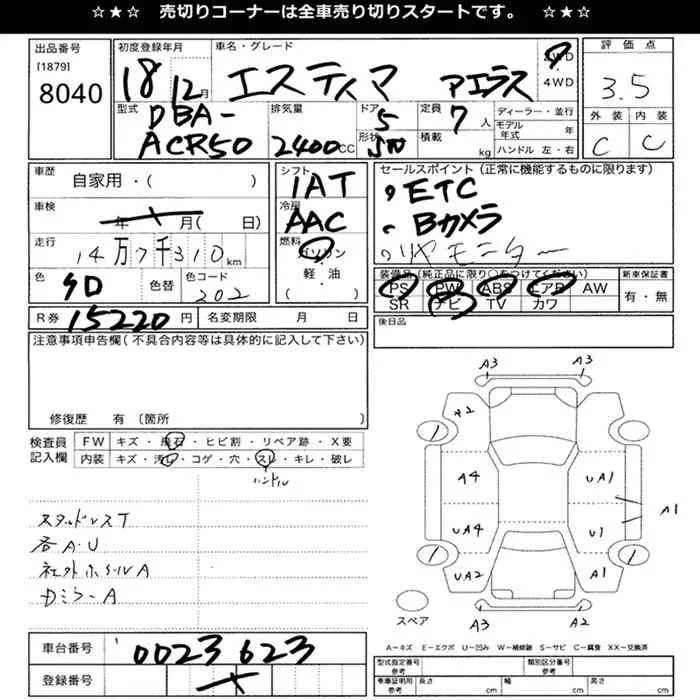 ☆★☆ 売切りコーナーは全車売り切りスタートです。 ☆★☆
出品番号 初度登録年月 車名・グレード 評価点
[1879]
8040
18 12月 エスティマ アエラス 2WD 4WD 3.5
型式 排気量 ドア 定員 ディーラー・並行 外装 内装
DBA- 5 7人 モデル年式 年 C C
ACR50 2400CC 形状 SW 積載 kg ハンドル 左・右
車歴 シフト セールスポイント(正常に機能するものに限ります)
自家用・( ) IAT ・ETC
車検 冷房 ・Bカメラ
年 月( 日) AAC ・リヤモニター
走行 燃料
14万7千310km ガソリン・軽・油・( )
色 色替 色コード 装備品(純正品に限り○をつけてください) 新車保証書
202 PS PW ABS エアB AW 有・無
SR ナビ TV カワ
R券 15220円 名変期限 月 日 後日品
注意事項申告欄(不具合内容等は具体的に記入して下さい)
修復歴 有〔箇所 〕
検査員記入欄 FW キズ・飛石・ヒビ割・リペア跡・X要
内装 キズ・汚れ・コゲ・穴・スレ・キレ・破レ
ハンドル
スタッドレスT
各A・U
社外ホイールA
Dミラー A
A3 A3
A2
A4 UA1
A1
UA4 U1
UA2 A1
スペア
A3 A2
A−キズ E−エクボ U−凹み W−補修跡 S−サビ C−腐食 XX−交換済
車台番号 0023623
登録番号
型式指定番号 参考 類別区分番号 参考
車庫証明用 参考 長さ cm 幅 cm 高さ cm